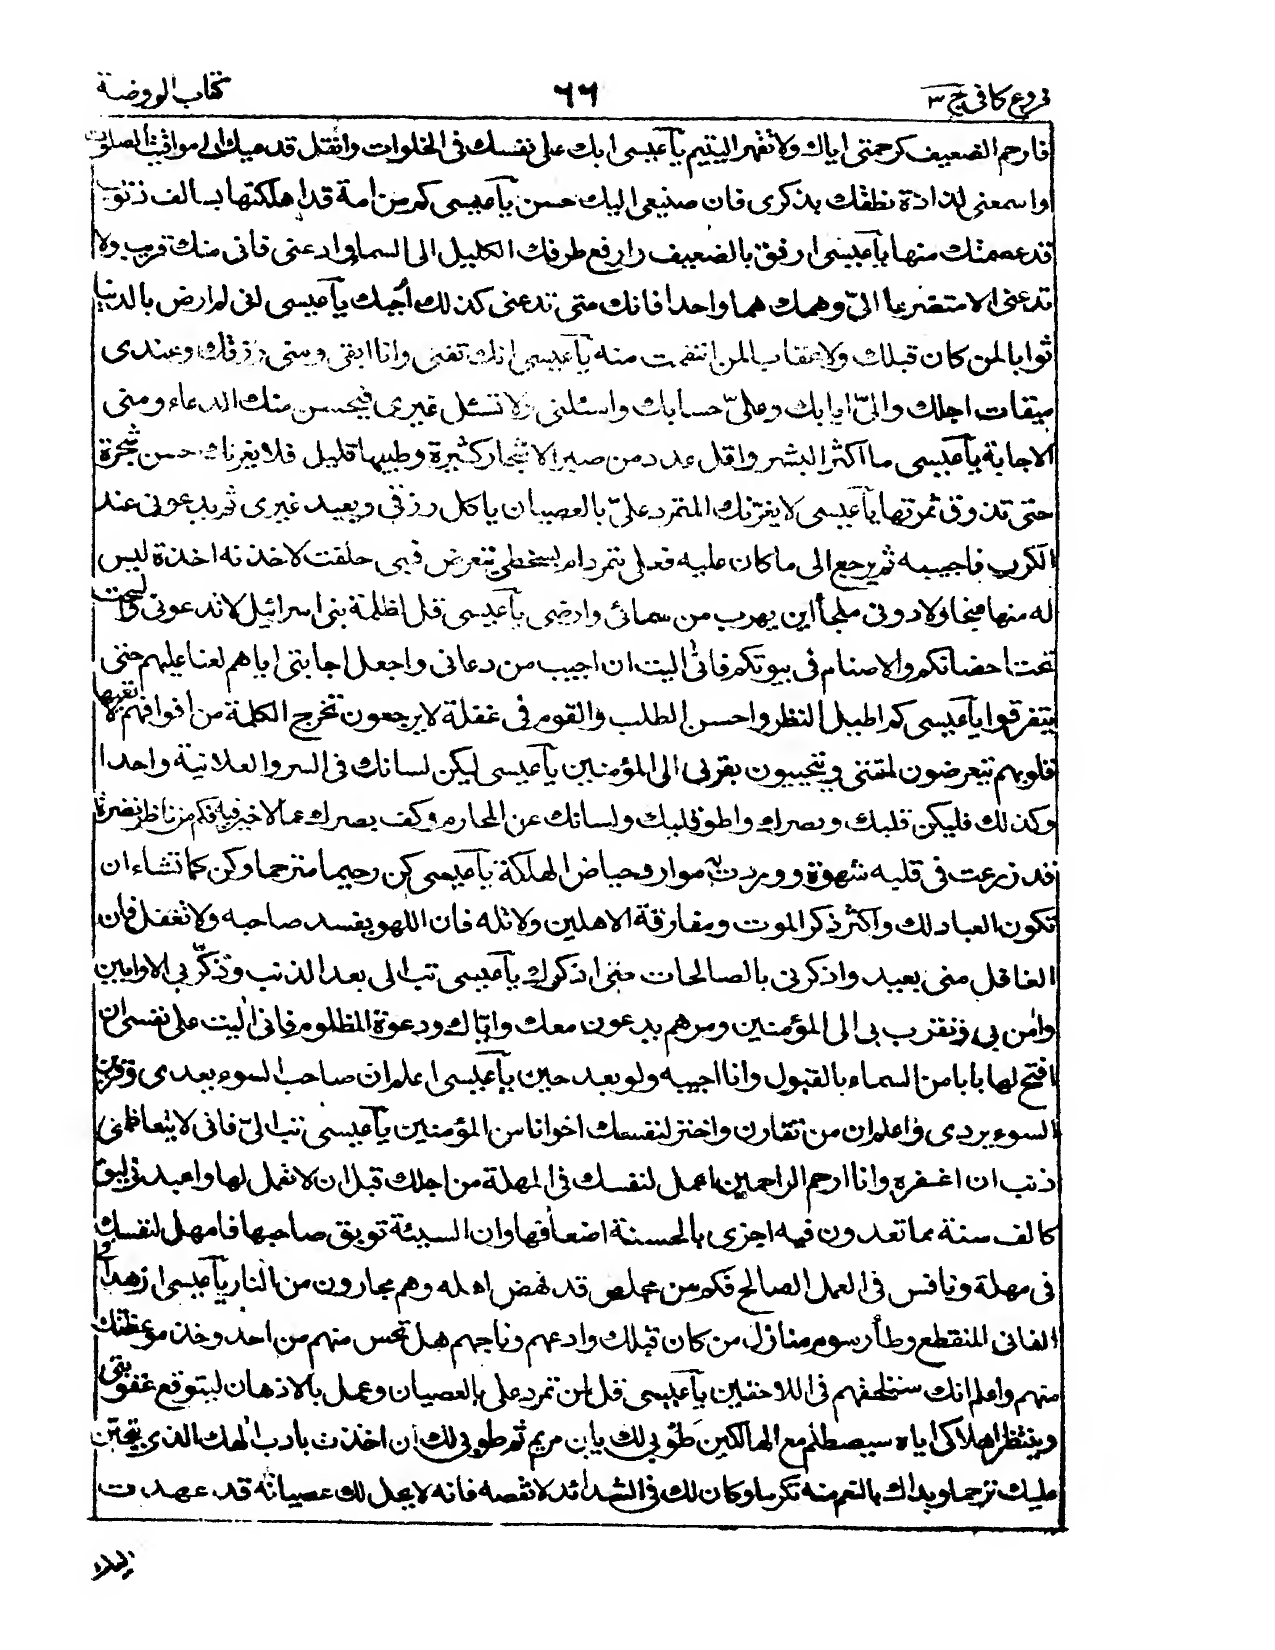 فروع كافى ج ٣ ٦٦ كتاب الروضة
فارحم الضعيف كرحمتى اياك ولا تقهر اليتيم يا عيسى ابك على نفسك فى الخلوات وانقل قدميك الى مواقيت الصلوات
واسمعنى لذاذة نطقك بذكرى فان صنيعى اليك حسن يا عيسى كم من امة قد اهلكتها بسالف ذنوب
قد عصمتك منها يا عيسى ارفق بالضعيف وارفع طرفك الكليل الى السماء وادعنى فانى منك قريب ولا
تدعنى الا متضرعا الىّ وهمك هما واحدا فانك متى تدعنى كذلك أجبك يا عيسى انى لم ارض بالدنيا
ثوابا لمن كان قبلك ولا عقابا لمن انتقمت منه يا عيسى انك تفنى وانا ابقى ومنى رزقك وعندى
ميقات اجلك والىّ ايابك وعلىّ حسابك واسئلنى ولا تسئل غيرى فيحسن منك الدعاء ومنى
الاجابة يا عيسى ما اكثر البشر واقل عدد من صبر الاشجار كثيرة وطيبها قليل فلا يغرنك حسن شجرة
حتى تذوق ثمرتها يا عيسى لا يغرنك المتمرد علىّ بالعصيان ياكل رزقى ويعبد غيرى ثم يدعونى عند
الكرب فاجيبه ثم يرجع الى ما كان عليه فعلى يتمرد ام بسخطى يتعرض فبى حلفت لاخذنه اخذة ليس
له منها منجا ولا دونى ملجأ اين يهرب من سمائى وارضى يا عيسى قل لظلمة بنى اسرائيل لا تدعونى والسحت
تحت احضانكم والاصنام فى بيوتكم فانى اليت ان اجيب من دعانى واجعل اجابتى اياهم لعنا عليهم حتى
يتفرقوا يا عيسى كم اطيل النظر واحسن الطلب والقوم فى غفلة لا يرجعون تخرج الكلمة من افواههم لا تعيها
قلوبهم يتعرضون لمقتى ويتحببون بقربى الى المؤمنين يا عيسى ليكن لسانك فى السر والعلانية واحدا
وكذلك فليكن قلبك وبصرك واطو قلبك ولسانك عن المحارم وكف بصرك عما لا خير فيه فكم من ناظر نضرة
قد زرعت فى قلبه شهوة ووردت به موارد حياض الهلكة يا عيسى كن رحيما مترحما وكن كما تشاء ان
تكون العباد لك واكثر ذكر الموت ومفارقة الاهلين ولا تله فان اللهو يفسد صاحبه ولا تغفل فان
الغافل منى بعيد واذكرنى بالصالحات حتى اذكرك يا عيسى تب الى بعد الذنب وذكّر بى الاوابين
وامن بى وتقرب بى الى المؤمنين ومرهم يدعون معك واياك ودعوة المظلوم فانى اليت على نفسى ان
افتح لها بابا من السماء بالقبول وانا اجيبه ولو بعد حين يا عيسى اعلم ان صاحب السوء يعدى وقرين
السوء يردى واعلم ان من تقارن واختر لنفسك اخوانا من المؤمنين يا عيسى تب الىّ فانى لا يتعاظمنى
ذنب ان اغفره وانا ارحم الراحمين اعمل لنفسك فى المهلة من اجلك قبل ان لا تعمل لها واعبدنى ليوم
كالف سنة مما تعدون فيه اجزى بالحسنة اضعافها وان السيئة توبق صاحبها فامهل لنفسك
فى مهلة ونافس فى العمل الصالح فكم من مجلس قد نهض اهله وهم مجارون من النار يا عيسى ازهد فى
الفانى المنقطع وطأ رسوم منازل من كان قبلك وادعهم وناجهم هل تحس منهم من احد وخذ موعظتك
منهم واعلم انك ستلحقهم فى اللاحقين يا عيسى قل لمن تمرد على بالعصيان وعمل بالادهان ليتوقع عقوبتى
وينتظر اهلاكى اياه سيصطلم مع الهالكين طوبى لك يابن مريم ثم طوبى لك ان اخذت بادب الهك الذى يتحنن
عليك ترحما وبداك بالنعم منه تكرما وكان لك فى الشدائد لا تعصه فانه لا يحل لك عصيانه قد عهدت
اليك